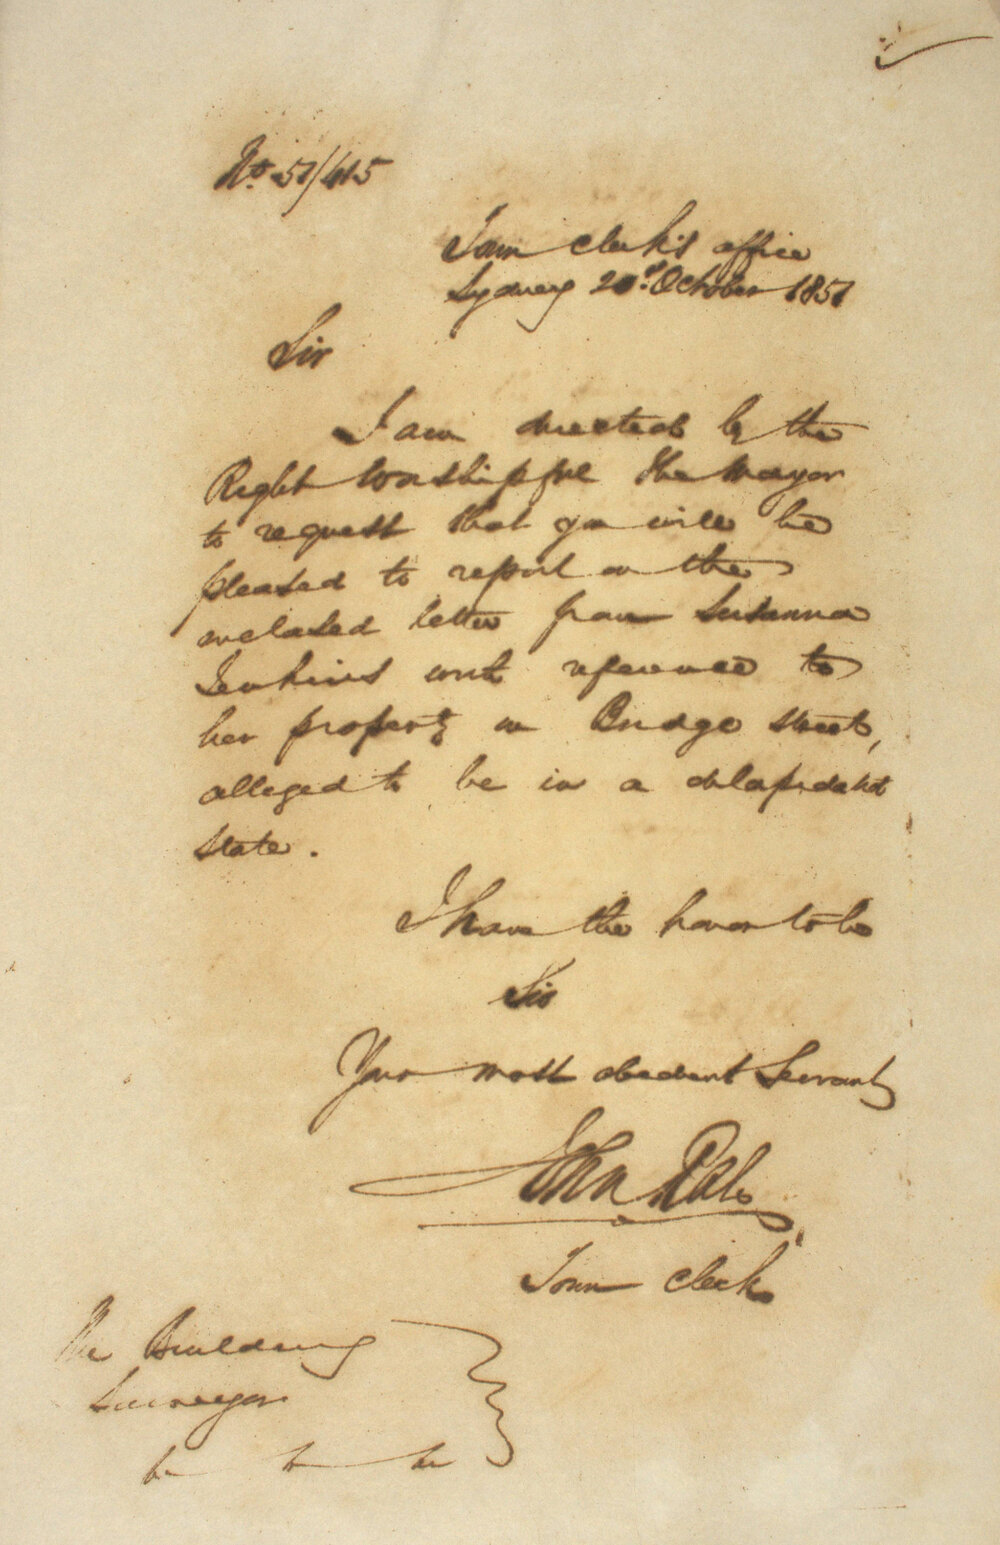 No. 51/415
Town Clerk's Office
Sydney October 1851
Sir
I am directed by the
Right Worshipful the Mayor
to request that you will be
pleased to report on the
inclosed letter from Susanna
Jenkins with reference to
her property in Bridge Street,
alleged to be in a delapidated
state.
I have the honor to be
Sir
Your most obedient Servant
John
Town Clerk
The Building
Surveyor